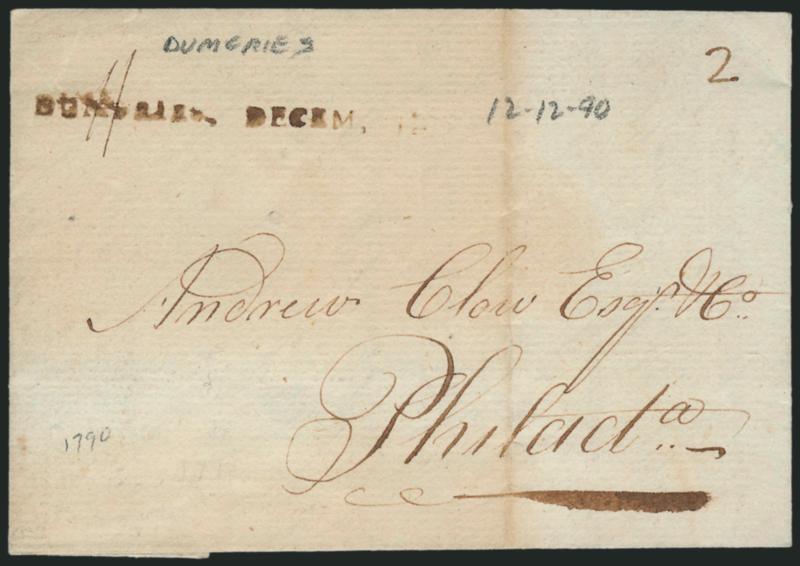 DUMFRIES
2
11
DUMFRIES, DECEM, 12
12-12-90
Andrew Clow Esqr. & Co.
Philada.
1790